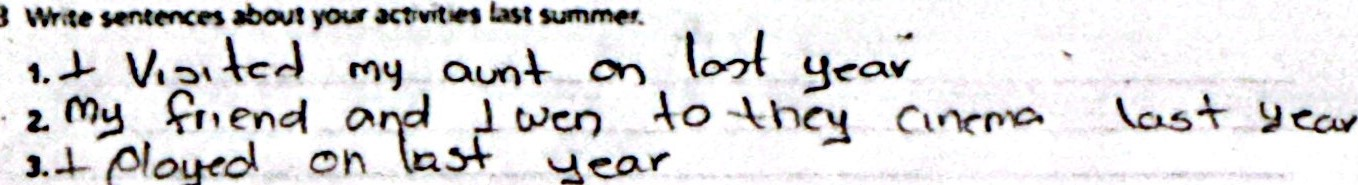 3 Write sentences about your activities last summer.
1. I Visited my aunt on last year
2 My friend and I wen to they cinema last year
3. I played on last year